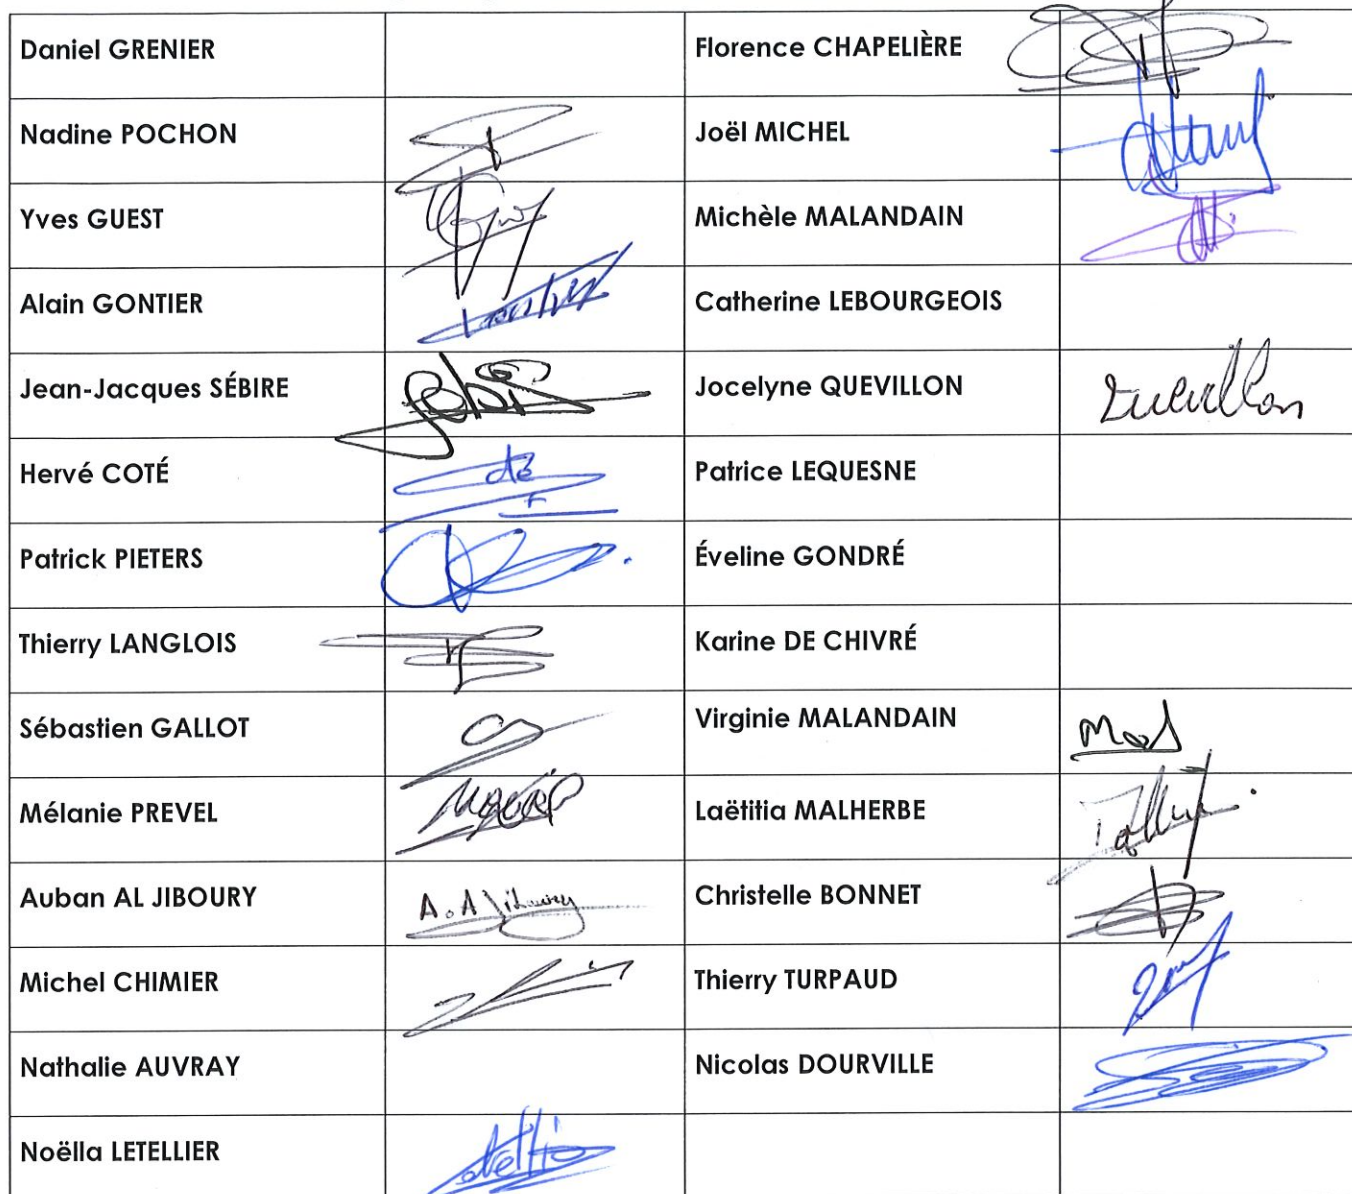 Daniel GRENIER
Florence CHAPELIÈRE
Nadine POCHON
Joël MICHEL
Yves GUEST
Michèle MALANDAIN
Alain GONTIER
Catherine LEBOURGEOIS
Jean-Jacques SÉBIRE
Jocelyne QUEVILLON
Quevillon
Hervé COTÉ
Patrice LEQUESNE
Patrick PIETERS
Éveline GONDRÉ
Thierry LANGLOIS
Karine DE CHIVRÉ
Sébastien GALLOT
Virginie MALANDAIN
Mélanie PREVEL
Laëtitia MALHERBE
Auban AL JIBOURY
A.AJiboury
Christelle BONNET
Michel CHIMIER
Thierry TURPAUD
Nathalie AUVRAY
Nicolas DOURVILLE
Noëlla LETELLIER